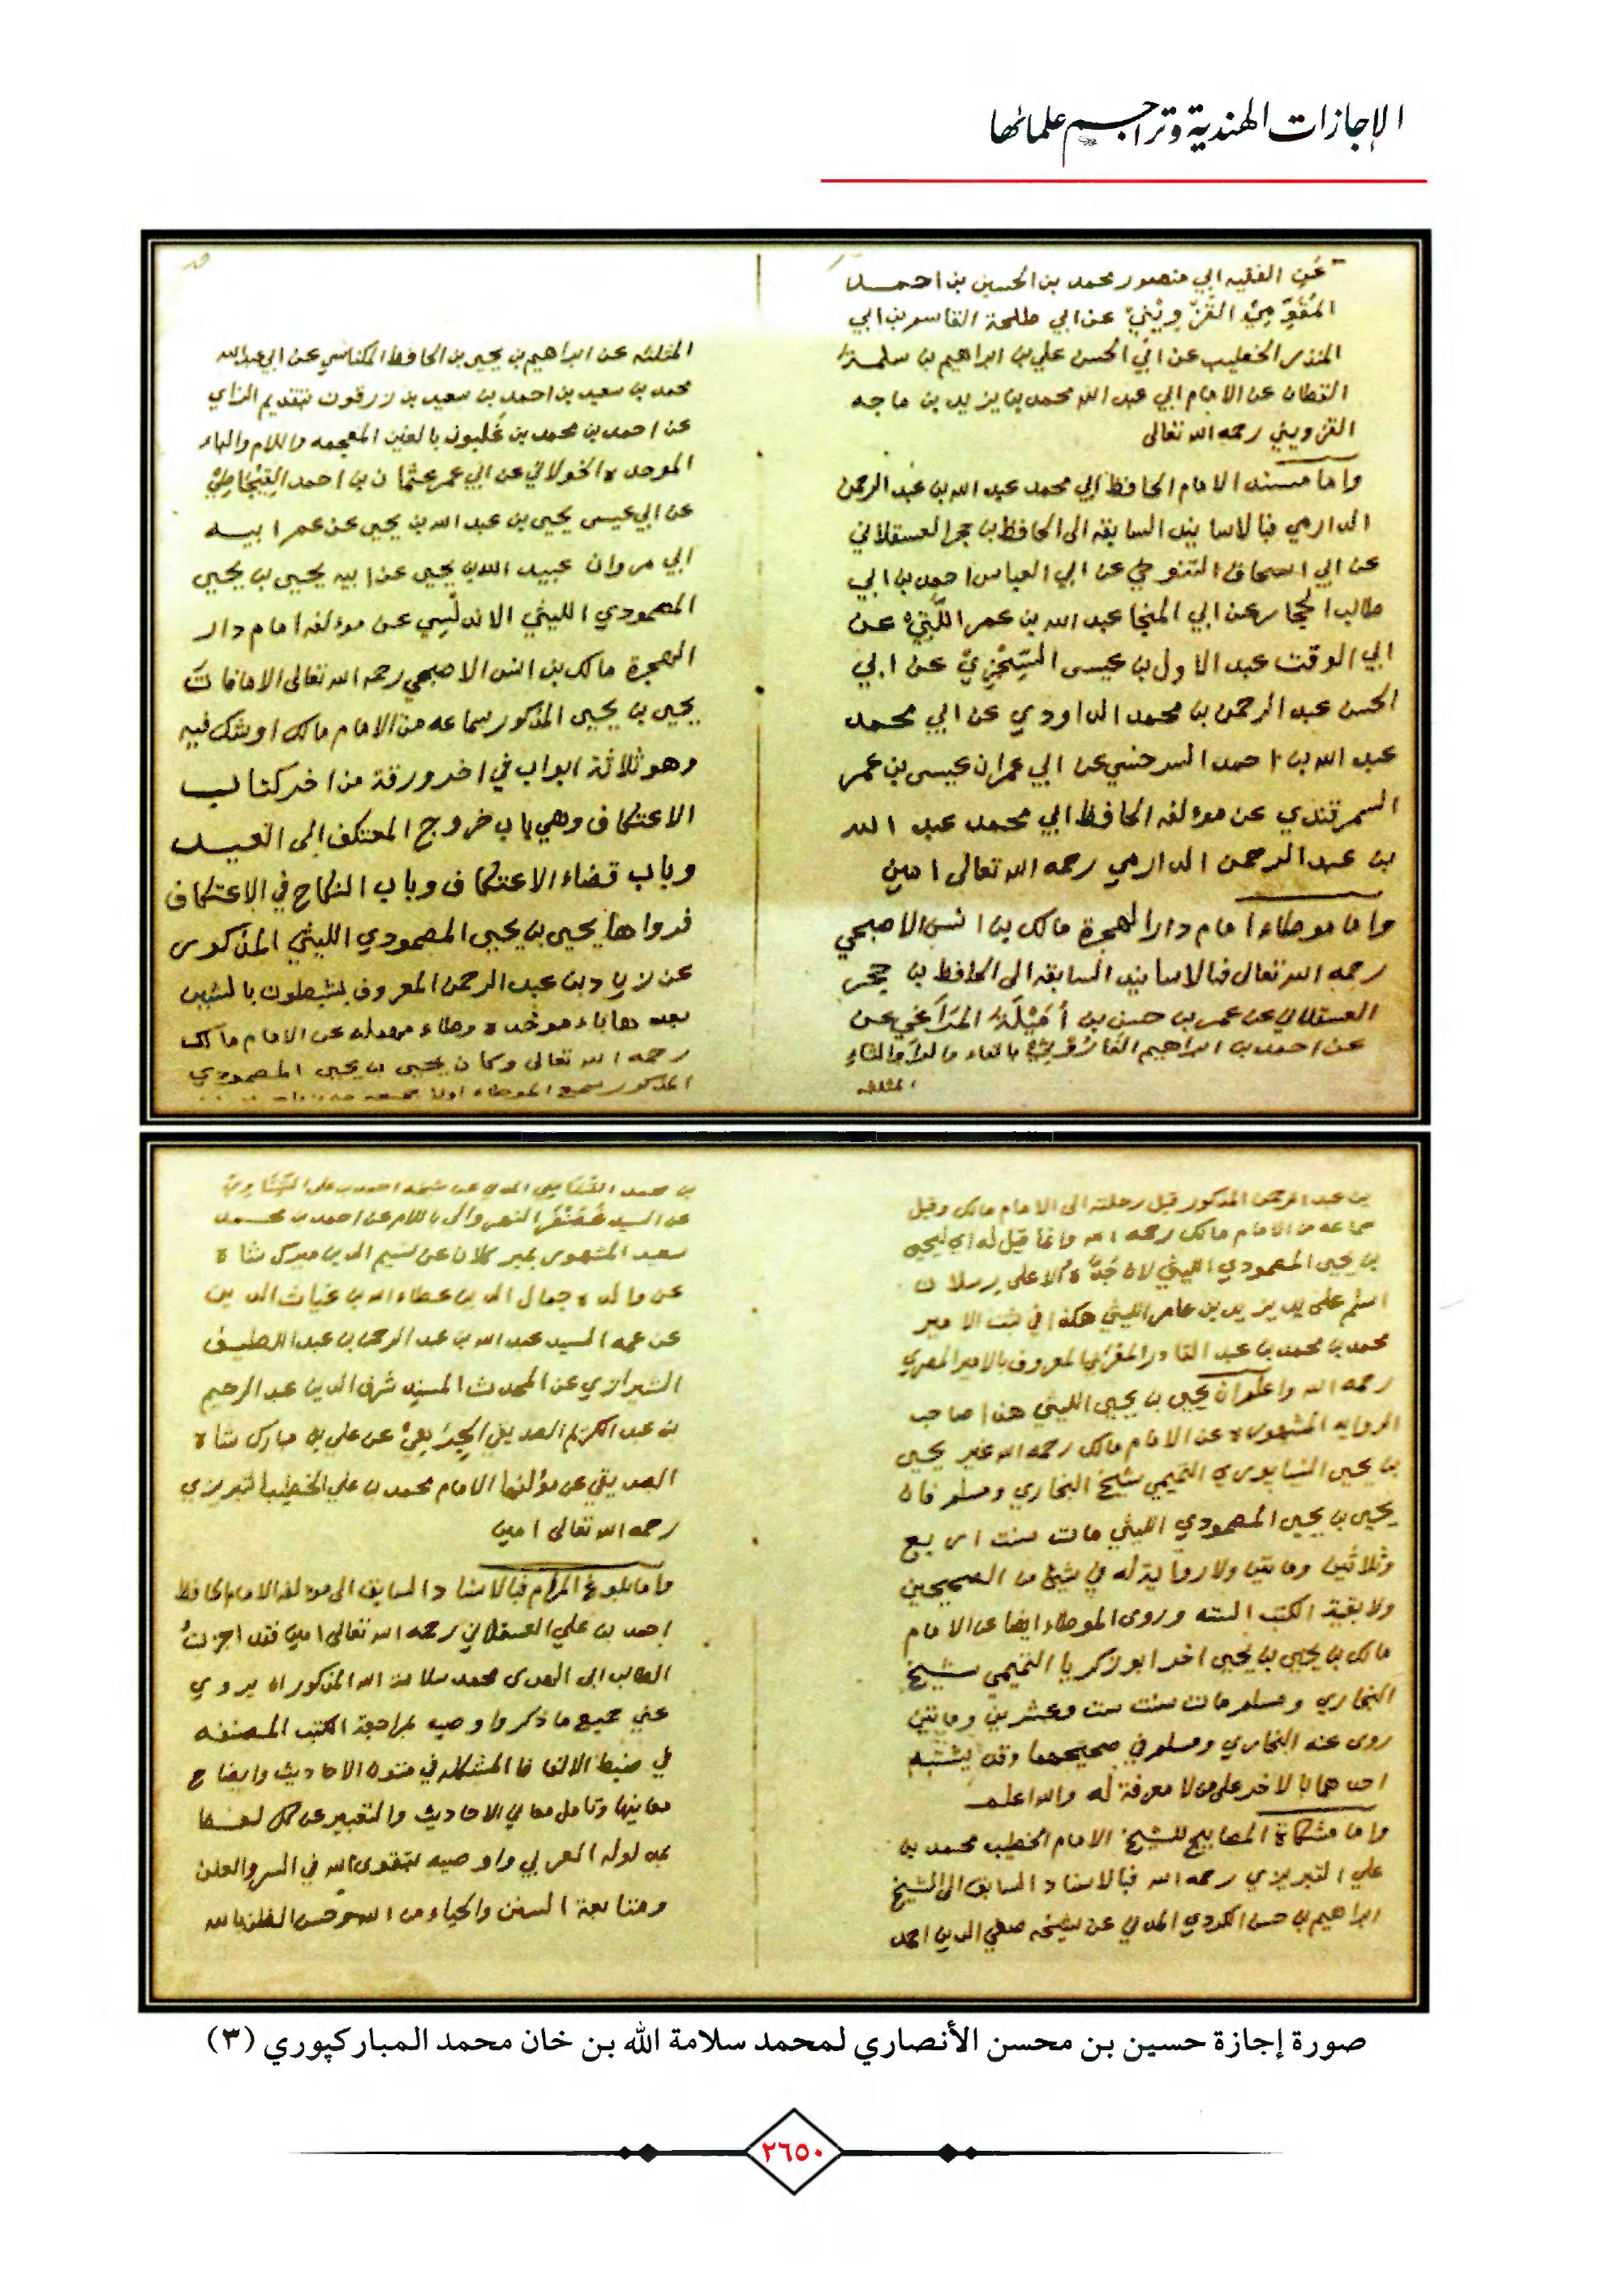 الإجازات الهندية وتراجم علمائها
عن الفقيه ابي منصور محمد بن الحسين بن احمد
المُقَوِّمِيْ القَزْوِيْنِيْ عن ابي طلحة القاسم بن ابي
المنذر الخطيب عن ابي الحسن علي بن ابراهيم بن سلمة
القطان عن الامام ابي عبد الله محمد بن يزيد بن ماجه
القزويني رحمه الله تعالى
واما مسند الامام الحافظ ابي محمد عبد الله بن عبد الرحمن
الدارمي فبالاسانيد السابقه الى الحافظ بن حجر العسقلاني
عن ابي اسحاق التنوخي عن ابي العباس احمد بن ابي
طالب الحجار عن ابي المنجا عبد الله بن عمر اللَّتِّيْ عن
ابي الوقت عبد الاول بن عيسى السِّجْزِيْ عن ابي
الحسن عبد الرحمن بن محمد الداودي عن ابي محمد
عبد الله بن احمد السرخسي عن ابي عمران عيسى بن عمر
السمرقندي عن مؤلفه الحافظ ابي محمد عبد الله
بن عبد الرحمن الدارمي رحمه الله تعالى امين
واما موطاء امام دار الهجرة مالك بن انس الاصبحي
رحمه الله تعالى فبالاسانيد السابقه الى الحافظ بن حجر
العسقلاني عن عمر بن حسن بن أمَيْلَة المَرَاغي عن
عن احمد بن ابراهيم الفارُوْثيْ بالفاء والراء والثاء
المثلثه
المثلثه عن ابراهيم بن يحيى بن الحافظ المكناسي عن ابي عبد الله
محمد بن سعيد بن احمد بن سعيد بن زرقون بتقديم الزاي
عن احمد بن محمد بن غَلبون بالغين المعجمه واللام والباء
الموحده الخولاني عن ابي عمر عثمان بن احمد القِيْجَاطِيْ
عن ابي عيسى يحيى بن عبد الله بن يحيى عن عم ابيه
ابي مروان عبيد الله بن يحيى عن ابيه يحيى بن يحيى
المصمودي الليثي الاندلسي عن مؤلفه امام دار
الهجرة مالك بن انس الاصبحي رحمه الله تعالى الا ما فات
يحيى بن يحيى المذكور سماعه من الامام مالك او شك فيه
وهو ثلاثة ابواب في اخر ورقة من اخر كتاب
الاعتكاف وهي باب خروج المعتكف الى العيد
وباب قضاء الاعتكاف وباب النكاح في الاعتكاف
فرواها يحيى بن يحيى المصمودي الليثي المذكور
عن زياد بن عبد الرحمن المعروف بشبطون بالشين
بعدها باء موحده وطاء مهمله عن الامام مالك
رحمه الله تعالى وكان يحيى بن يحيى المصمودي
المذكور سمع الموطاء اولا
بن عبد الرحمن المذكور قبل رحلته الى الامام مالك وقبل
سماعه من الامام مالك رحمه الله وانما قيل له اي ليحيى
بن يحيى المصمودي الليثي لان جَدَّه الاعلى برسلان
اسلم على يد يزيد بن عامر الليثي هكذا في ثبت الامير
محمد بن محمد بن عبد القادر المغربي المعروف بالامير المصري
رحمه الله واعلم ان يحيى بن يحيى الليثي هذا صاحب
الروايه المشهوره عن الامام مالك رحمه الله غير يحيى
بن يحيى النيسابوري التميمي شيخ البخاري ومسلم فان
يحيى بن يحيى المصمودي الليثي مات سنت اربع
وثلاثين ومائتين ولا رواية له في شيئ من الصحيحين
ولا بقية الكتب السته وروى الموطاء ايضا عن الامام
مالك بن يحيى بن يحيى اخر ابو زكريا التميمي شيخ
البخاري ومسلم مات سنت ست وعشرين ومائتين
روى عنه البخاري ومسلم في صحيحهما وقد يشتبه
احدهما بالاخر على من لا معرفة له والله اعلم
واما مشكاة المصابيح للشيخ الامام الخطيب محمد بن
علي التبريزي رحمه الله فبالاسناد السابق الى الشيخ
ابراهيم بن حسن الكردي المدني عن شيخه صفي الدين احمد
بن محمد القشاشي المدني عن شيخه احمد بن علي الشِّنَّاوِيْ
عن السيد غَضَنْفَر النهروالي باللام عن احمد بن محمد
سعيد المشهور بمير كلان عن نسيم الدين ميرك شاه
عن والده جمال الدين عطاء الله بن غياث الدين
عن عمه السيد عبد الله بن عبد الرحمن بن عبد اللطيف
الشيرازي عن المحدث المسند شرف الدين عبد الرحيم
بن عبد الكريم الصديقي الجِرَهِيْ عن علي بن مبارك شاه
الصديقي عن مؤلفها الامام محمد بن علي الخطيب التبريزي
رحمه الله تعالى امين
واما بلوغ المرام فبالاسناد السابق الى مؤلفه الامام الحافظ
احمد بن علي العسقلاني رحمه الله تعالى امين فقد اجزتُ
الطالب ابي الهدى محمد سلامت الله المذكور ان يروي
عني جميع ما ذكر واوصيه بمراجعة الكتب المصنفه
في ضبط الالفاظ المشكله في متون الاحاديث وايضاح
معانيها وتامل معاني الاحاديث والتعبير عن كل لفظ
بمدلوله العربي واوصيه بتقوى الله في السر والعلن
ومتابعة السنن والحياء من الله وحسن الظن بالله
صورة إجازة حسين بن محسن الأنصاري لمحمد سلامة الله بن خان محمد المباركپوري (٣)
٢٦٥٠